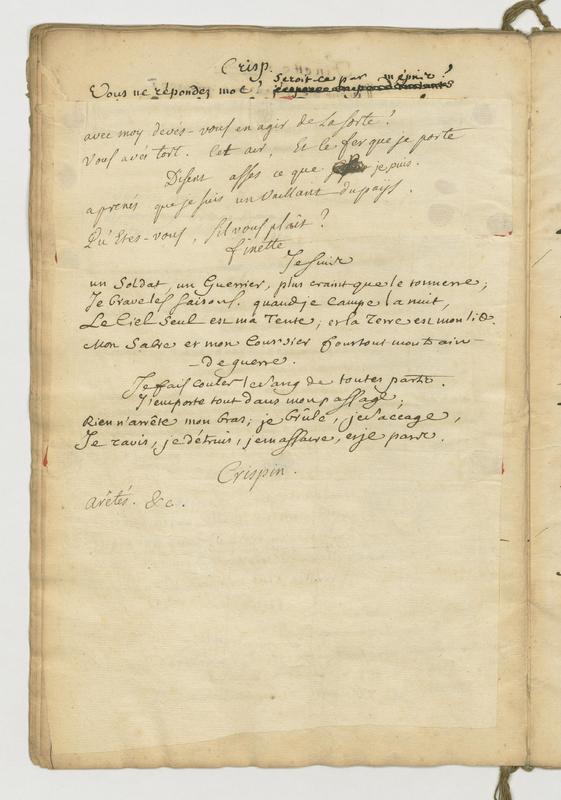 Crisp.
Vous ne répondez mot! seroit-ce par mépris?
avec moy devés-vous en agir de la sorte?
Vous avés tort. Cet air, Et le fer que je porte
Disent assés ce que je puis.
aprenés que je suis un Vaillant du païs.
Qu'Etes-vous, s'il vous plait?
finette
Je suis
un Soldat, un Guerrier, plus craint que le tonnerre;
Je brave les saisons. quand je campe la nuit,
Le Ciel Seul est ma Tente; et la Terre est mon lit.
Mon Sabre et mon Coursier sont tout mon train
de guerre.
Je fais couler le sang de toutes parts.
J'emporte tout dans mon passage;
Rien n'arrête mon bras; je brûle, je saccage,
Je ravis, je détruis, je massacre, et je pars.
Crispin.
arêtés. &c.